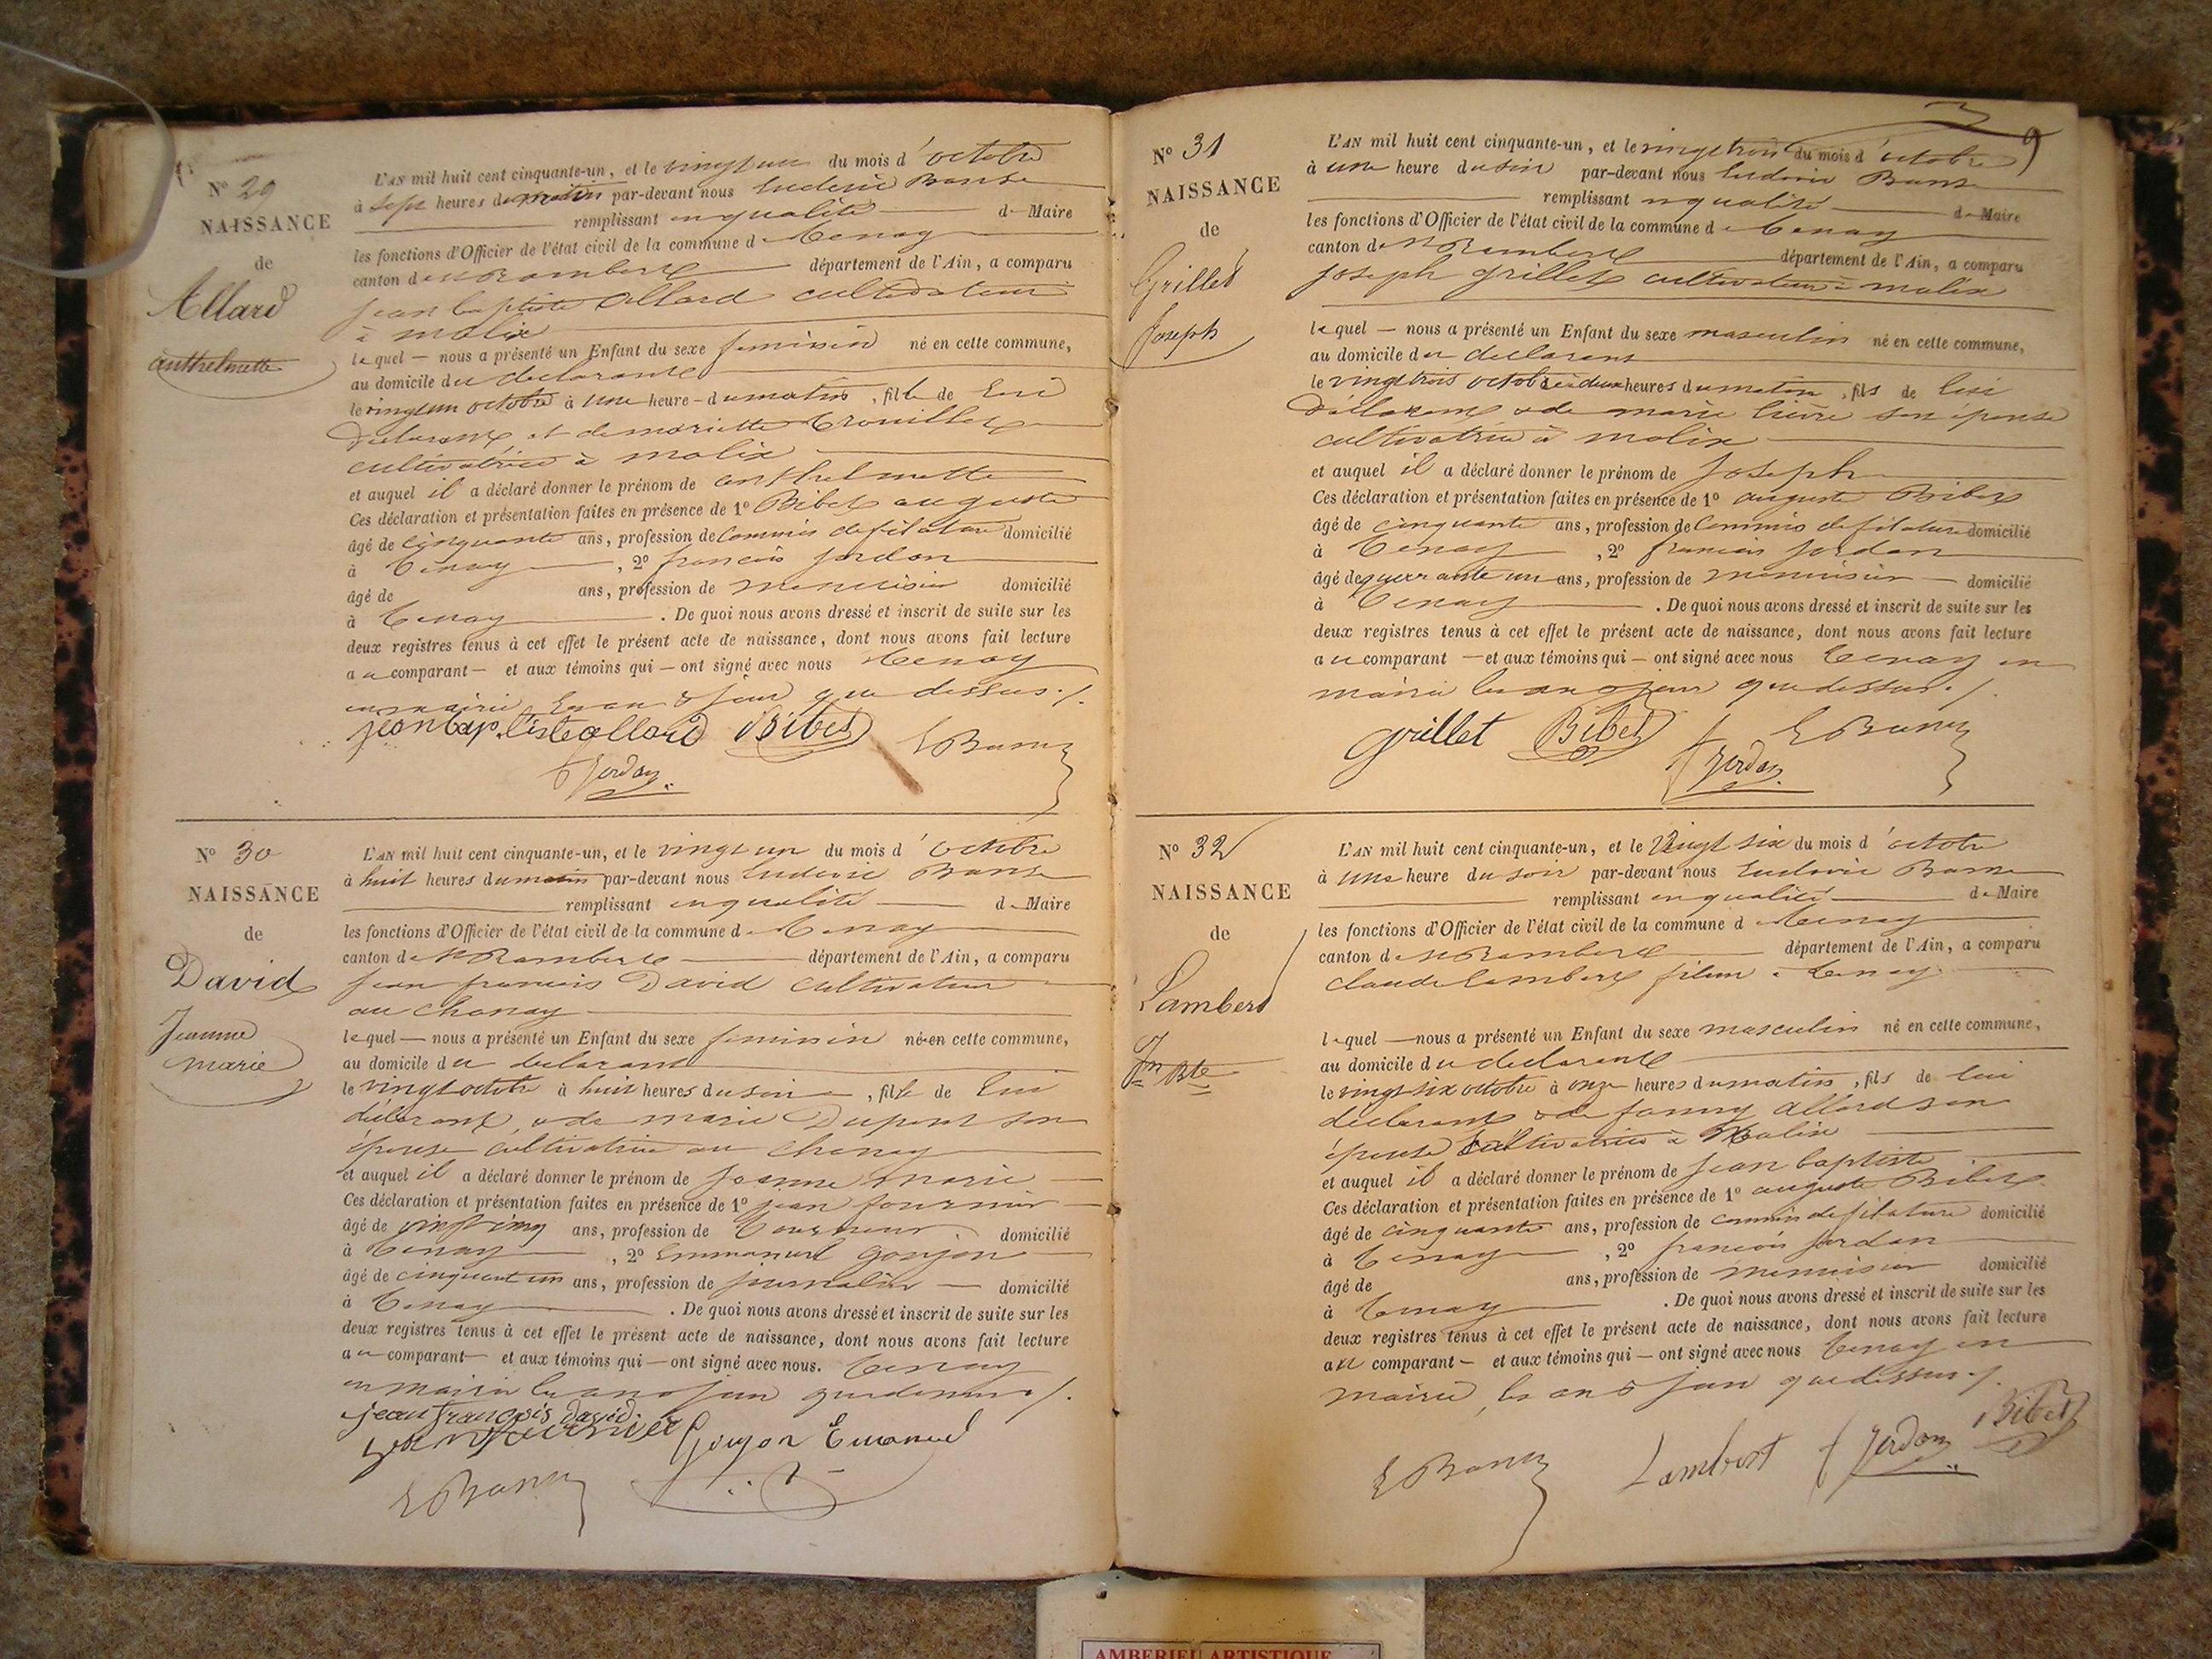 N° 29
NAISSANCE
de
Allard
anthelmette
L'AN mil huit cent cinquante-un, et le vingt un du mois d'octobre
à sept heures du matin par-devant nous
remplissant en qualité de Maire
les fonctions d'Officier de l'état civil de la commune de Tenay
canton de St Rambert département de l'Ain, a comparu
jean baptiste allard cultivateur
à malix
lequel — nous a présenté un Enfant du sexe feminin né en cette commune,
au domicile du declarant
le vingt un octobre à une heure du matin, fille de lui
declarant et de mariette Trouillet
cultivatrice à malix
et auquel il a déclaré donner le prénom de anthelmette
Ces déclaration et présentation faites en présence de 1° Bibet auguste
âgé de cinquante ans, profession de commis de filature domicilié
à Tenay, 2° françois jordan
âgé de ans, profession de menuisier domicilié
à Tenay. De quoi nous avons dressé et inscrit de suite sur les
deux registres tenus à cet effet le présent acte de naissance, dont nous avons fait lecture
au comparant — et aux témoins qui — ont signé avec nous Tenay
en mairie les an & jour que dessus ./.
jean baptiste allard Bibet
f jordan
N° 30
NAISSANCE
de
David
Jeanne
marie
L'AN mil huit cent cinquante-un, et le vingt un du mois d'octobre
à huit heures du matin par-devant nous
remplissant en qualité de Maire
les fonctions d'Officier de l'état civil de la commune de Tenay
canton de St Rambert département de l'Ain, a comparu
jean francois David cultivateur
au chanay
lequel — nous a présenté un Enfant du sexe feminin né en cette commune,
au domicile du declarant
le vingt octobre à huit heures du soir, fille de lui
déclarant, & de marie Dupont son
épouse cultivatrice au chanay
et auquel il a déclaré donner le prénom de jeanne marie
Ces déclaration et présentation faites en présence de 1° jean fournier
âgé de vingt cinq ans, profession de tourneur domicilié
à Tenay, 2° Emmanuel goujon
âgé de cinquant un ans, profession de journalier domicilié
à Tenay. De quoi nous avons dressé et inscrit de suite sur les
deux registres tenus à cet effet le présent acte de naissance, dont nous avons fait lecture
au comparant — et aux témoins qui — ont signé avec nous. Tenay
en mairie les an & jour que dessus ./.
jean françois david
jean fournier Goujon Emanuel
9
N° 31
NAISSANCE
de
Grillet
Joseph
L'AN mil huit cent cinquante-un, et le vingt trois du mois d'octobre
à une heure du soir par-devant nous
remplissant en qualité de Maire
les fonctions d'Officier de l'état civil de la commune de Tenay
canton de St Rambert département de l'Ain, a comparu
joseph grillet cultivateur à malix
lequel — nous a présenté un Enfant du sexe masculin né en cette commune,
au domicile du declarant
le vingt trois octobre à deux heures du matin, fils de lui
déclarant & de marie lievre son épouse
cultivatrice à malix
et auquel il a déclaré donner le prénom de joseph
Ces déclaration et présentation faites en présence de 1° auguste Bibet
âgé de cinquante ans, profession de commis de filature domicilié
à Tenay, 2° francois jordan
âgé de quarante un ans, profession de menuisier domicilié
à Tenay. De quoi nous avons dressé et inscrit de suite sur les
deux registres tenus à cet effet le présent acte de naissance, dont nous avons fait lecture
au comparant — et aux témoins qui — ont signé avec nous Tenay en
mairie les an & jour que dessus ./.
grillet Bibet
f jordan
N° 32
NAISSANCE
de
Lambert
Jn Bte
L'AN mil huit cent cinquante-un, et le Vingt six du mois d'octobre
à une heure du soir par-devant nous
remplissant en qualité de Maire
les fonctions d'Officier de l'état civil de la commune de Tenay
canton de St Rambert département de l'Ain, a comparu
claude lambert fileur à Tenay
lequel — nous a présenté un Enfant du sexe masculin né en cette commune,
au domicile du declarant
le vingt six octobre à onze heures du matin, fils de lui
declarant & de fanny allard son
épouse cultivatrice à Malix
et auquel il a déclaré donner le prénom de jean baptiste
Ces déclaration et présentation faites en présence de 1° auguste Bibet
âgé de cinquante ans, profession de commis de filature domicilié
à Tenay, 2° françois jordan
âgé de ans, profession de menuisier domicilié
à Tenay. De quoi nous avons dressé et inscrit de suite sur les
deux registres tenus à cet effet le présent acte de naissance, dont nous avons fait lecture
au comparant — et aux témoins qui — ont signé avec nous Tenay en
mairie, les an & jour que dessus ./.
Lambert f jordan Bibet
AMBERIEU ARTISTIQUE